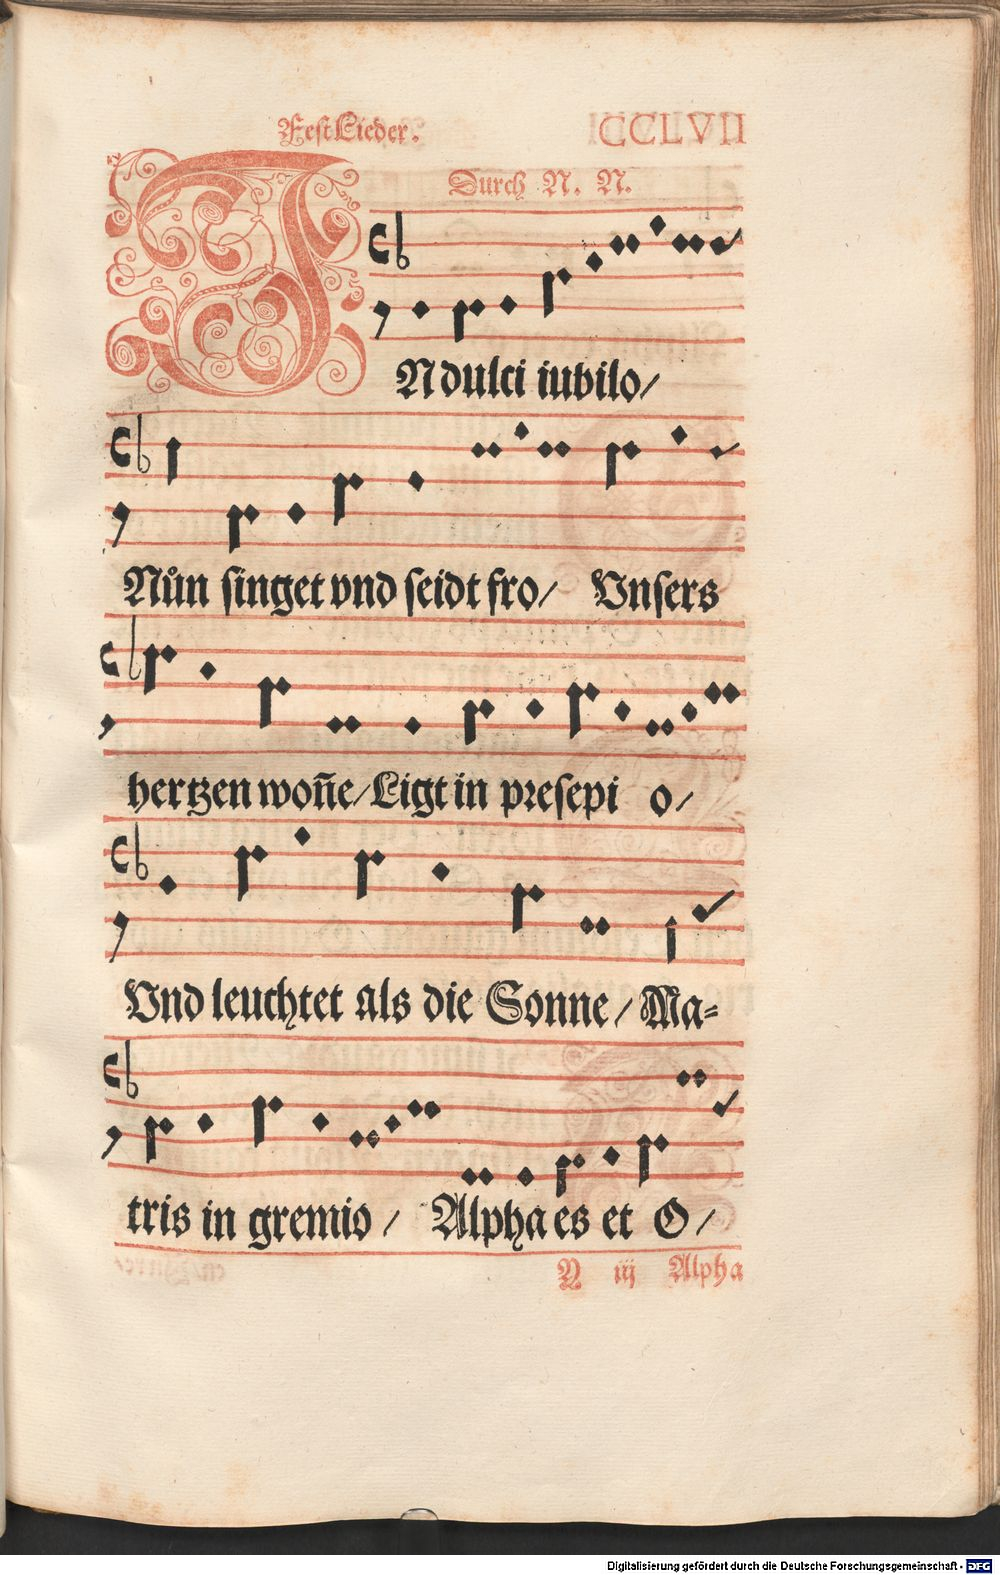 FestLieder. CCLVII
Durch N. N.
IN dulci iubilo/
Nůn singet vnd seidt fro/ Vnsers
hertzen won̄e/Ligt in presepi o/
Vnd leuchtet als die Sonne/Ma-
tris in gremio/ Alpha es et O/
N iij Alpha
Digitalisierung gefördert durch die Deutsche Forschungsgemeinschaft - DFG